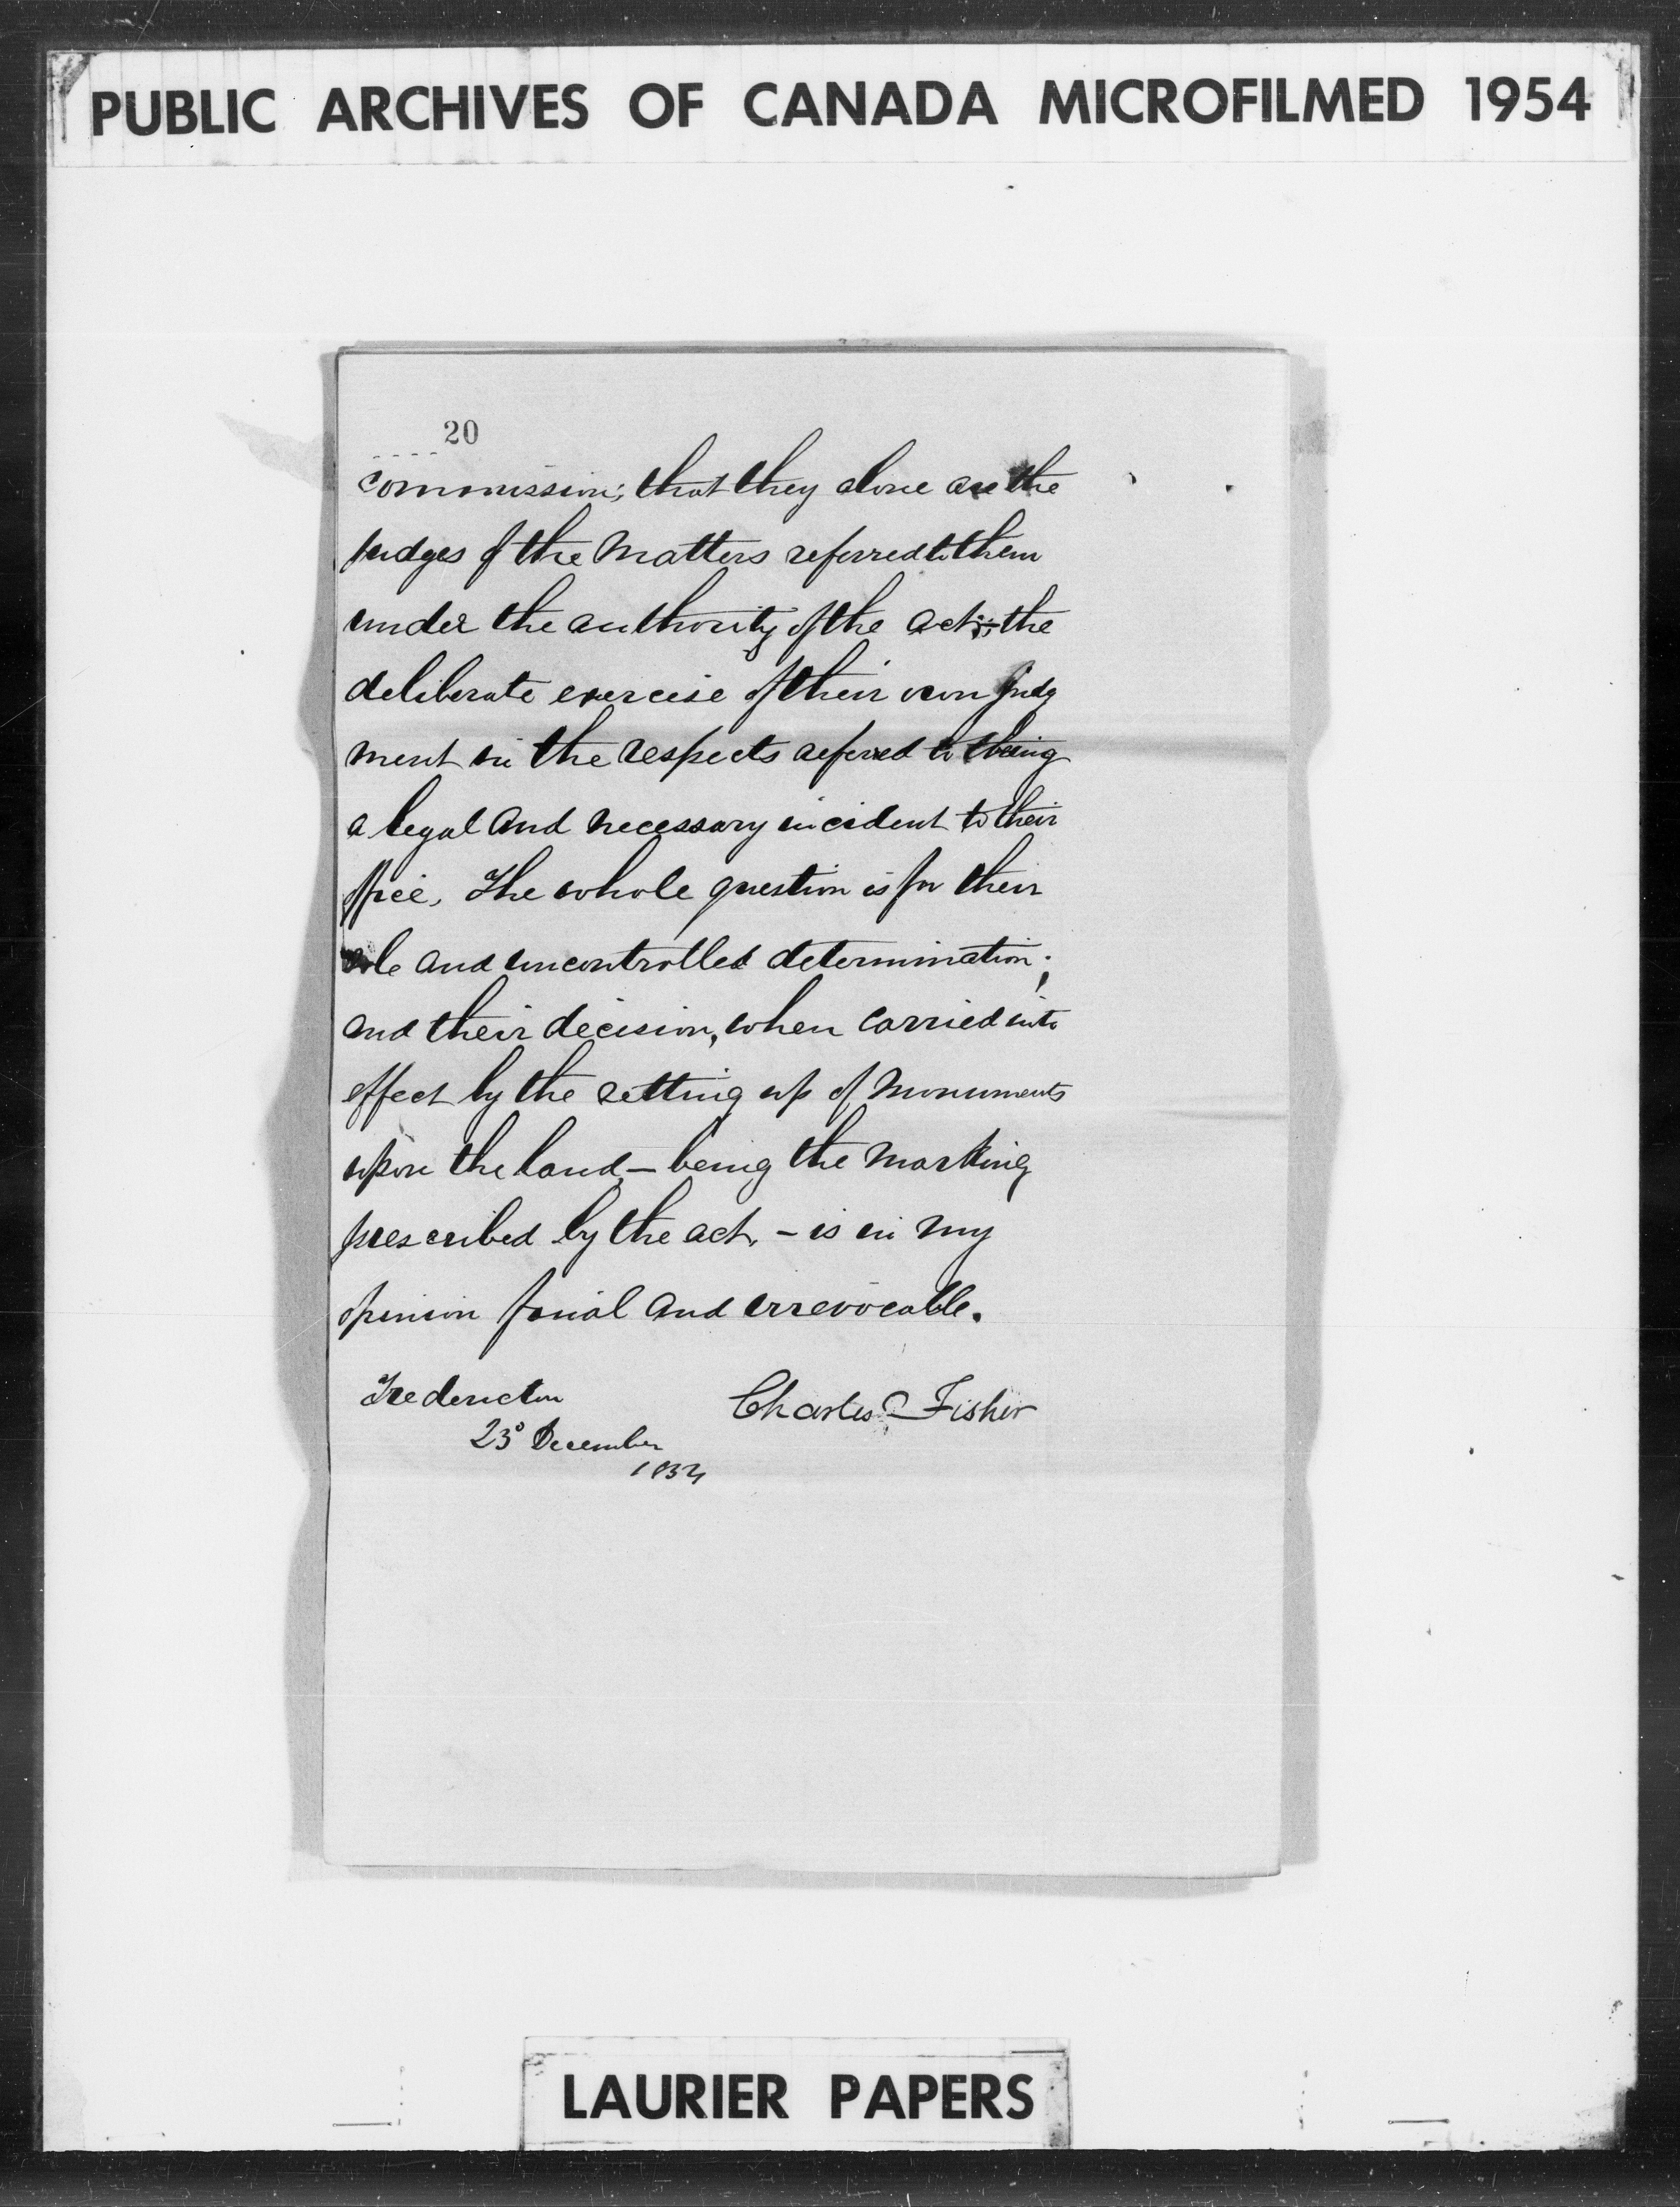 PUBLIC ARCHIVES OF CANADA MICROFILMED 1954
20
commission; that they alone are the
judges of the Matters referred to them
under the authority of the act; the
deliberate exercise of their own judg
ment in the respects referred to being
a legal and necessary incident to their
office. The whole question is for their
sole and uncontrolled determination;
and their decision, when carried into
effect by the setting up of Monuments
upon the land, – being the Marking
prescribed by the act, – is in my
opinion final and irrevocable.
Fredericton
Charles Fisher
23d December
LAURIER PAPERS